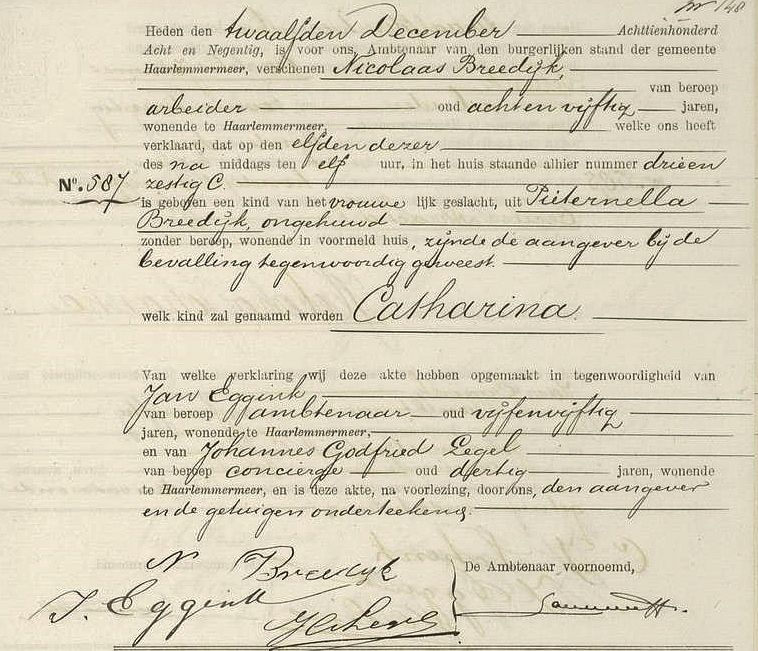 148
Heden den twaalfden December Achttienhonderd
Acht en Negentig, is voor ons, Ambtenaar van den burgerlijken stand der gemeente
Haarlemmermeer, verschenen Nicolaas Breedijk,
van beroep
arbeider oud acht en vijftig jaren,
wonende te Haarlemmermeer, welke ons heeft
verklaard, dat op den elfden dezer
des na middags ten elf uur, in het huis staande alhier nummer drieen
No. 587 zestig C.
is geboren een kind van het vrouwelijk geslacht, uit Pieternella
Breedijk, ongehuwd
zonder beroep, wonende in voormeld huis, zijnde de aangever bij de
bevalling tegenwoordig geweest.
welk kind zal genaamd worden Catharina.
Van welke verklaring wij deze akte hebben opgemaakt in tegenwoordigheid van
Jan Eggink
van beroep ambtenaar oud vijfenvijftig
jaren, wonende te Haarlemmermeer,
en van Johannes Godfried Legel
van beroep concierge oud dertig jaren, wonende
te Haarlemmermeer, en is deze akte, na voorlezing, door ons, den aangever
en de getuigen onderteekend.
N Breedijk
De Ambtenaar voornoemd,
J. Eggink